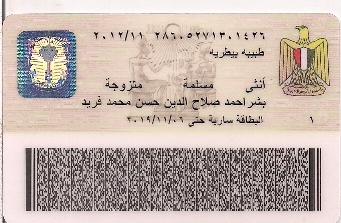 ٢٠١٢/١١ ٢٨٦٠٥٢٧١٣٠١٤٢٦
طبيبه بيطريه
أنثى مسلمة متزوجة
بشراحمد صلاح الدين حسن محمد فريد
البطاقة سارية حتى ٢٠١٩/١١/٠٦
١